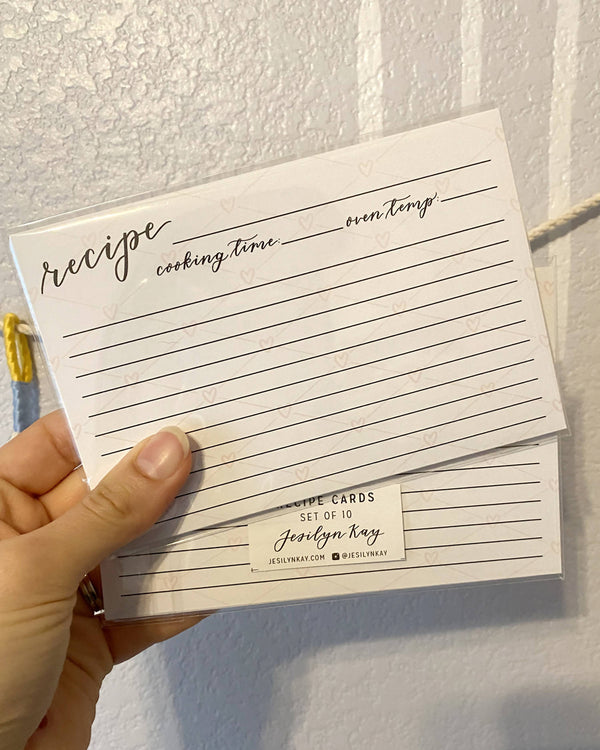 recipe
cooking time: oven temp:
RECIPE CARDS
SET OF 10
Jesilyn Kay
JESILYNKAY.COM @JESILYNKAY